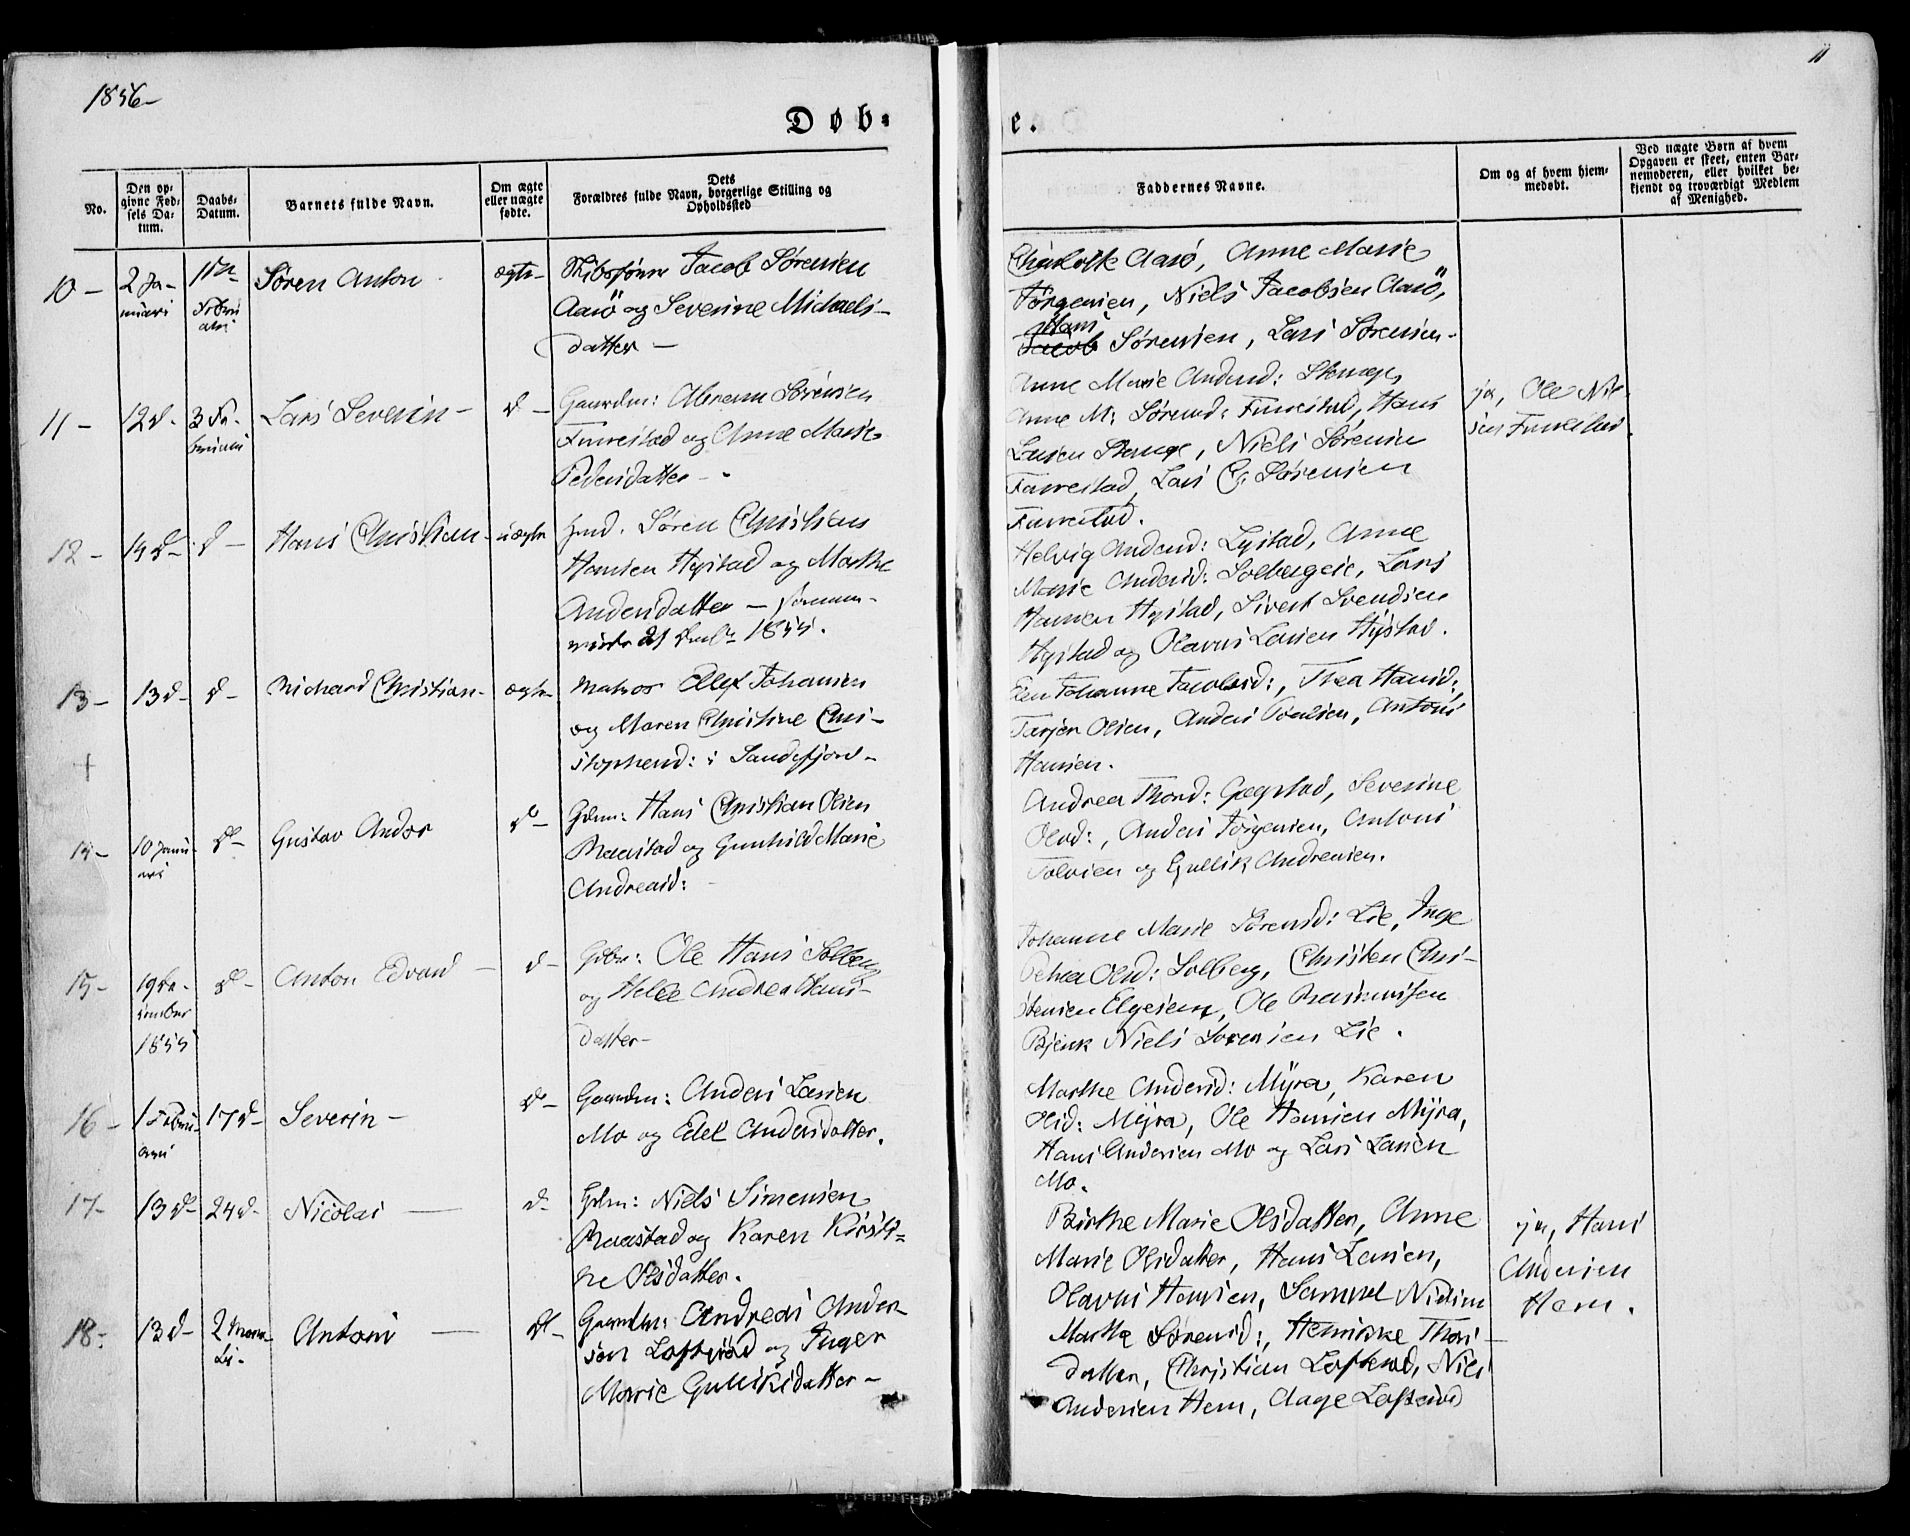 1856-
11
Døb-
e.
No.
Den op-
givne Fød-
sels Da-
tum.
Daabs-
Datum.
Barnets fulde Navn.
Om ægte
eller uægte
fødte.
Dets
Forældres fulde Navn, borgerlige Stilling og
Opholdssted
Faddernes Navne.
Om og af hvem hjem-
medøbt.
Ved uægte Børn af hvem
Opgaven er skeet, enten Bar-
nemoderen, eller hvilket be-
kjendt og troværdigt Medlem
af Menighed.
10 -
2 Ja-
nuari
Søren Anton
ægte-
Jacob Sørensen
Aasö og Severine Michaels-
datter -
Aasö, Anne Marie
Jørgensen, Niels Jacobsen Aasö,
Hans
Jacob Sørensen, Lars Sørensen.
11 -
12 d-
3 Fe-
bruari
Lars Severin -
d -
Gaardm: Abram Sørensen
Furrestad og Anne Marie
Pedersdatter -
Anne Marie Andersd: Stange,
Anne M: Sørensd: Furrestad, Hans
Larsen Stange, Niels Sørensen
Furrestad, Lars C. Sørensen
Furrestad.
ja, Ole Niel-
sen Furrestad.
12 -
14 d-
d -
Hans Christian -
uægte
Søren Christian
Hansen Hystad og Marthe
Andersdatter -
1855.
Helvig Andersd: Lystad, Anne
Marie Andersd: Solbergeie, Lars
Hansen Hystad, Sivert Svendsen
Hystad og Olavus Larsen Hystad.
13 -
13 d-
d -
Richard Christian -
ægte
Matros Johansen
og Maren Christine Chri-
stophersd: i Sandefjord -
Johanne Jacobsd:, Thea Hansd:,
Tarjer Olsen, Anders Poulsen, Antoni
Hansen.
14 -
10 Janu-
ari
d -
Gustav Andor
d -
Gdm: Hans Christian Olsen
Raastad og Gunhild Marie
Andreasd:
Andrea Thorsd: Gogstad, Severine
Olsd:, Anders Jørgensen, Antoni
Tolvsen og Gullik Andresen.
15 -
19 De-
cember
1855
d -
Anton Edvard -
d -
Gdbr: Ole Hans Solberg
og Helle Andrea Hans-
datter -
Johanne Marie Sørensd: Lie, Inge
Petrea Olsd: Solberg, Christen Chri-
stensen Elgesem, Ole Rasmussen
Bjerk Niels Sørensen Lie.
16 -
1 Febru-
ari
17 d -
Severin -
d -
Gaardm: Anders Larsen
Mo og Edel Andersdatter.
Marthe Andersd: Myra, Karen
Olsd: Myra, Ole Hansen Myra,
Hans Andersen Mo og Lars Larsen
Mo.
17 -
13 d -
24 d -
Nicolai -
d -
Gdm: Niels Simensen
Raastad og Karen Kirsti-
ne Olsdatter.
Birthe Marie Olsdatter, Anne
Marie Olsdatter, Hans Larsen,
Olavus Hansen, Samuel Nielsen
ja, Hans
Andersen
Hem.
18 -
13 d -
2 Mar-
ts -
Antoni -
d -
Gaardm: Andreas Ander-
sen Løfterød og Inger
Marie Gulliksdatter -
Marthe Sørensd:, Henrikke Thors-
datter, Christian Løfterød, Niels
Andersen Hem, Aage Løfterød